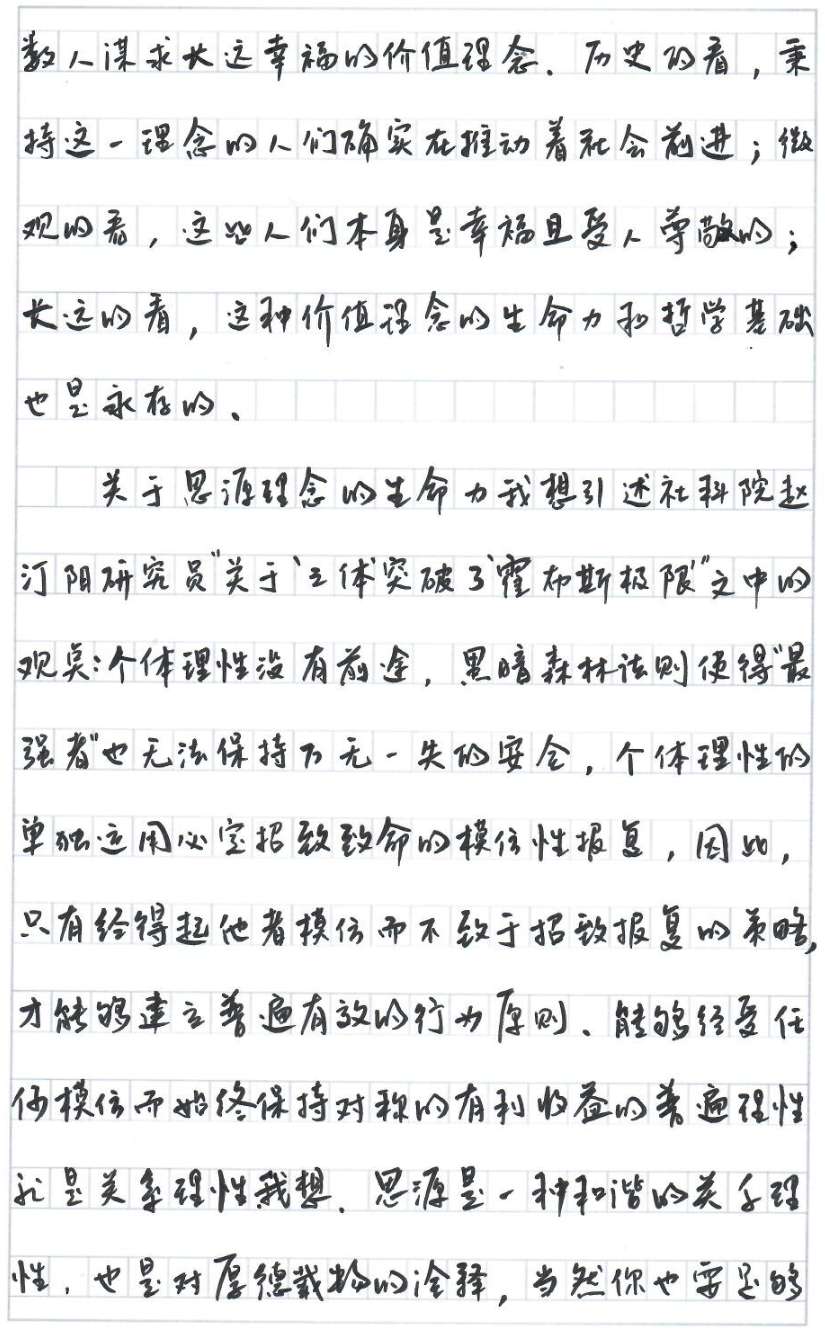 数人谋求长远幸福的价值理念．历史的看，秉
持这一理念的人们确实在推动着社会前进；微
观的看，这些人们本身是幸福且受人尊敬的；
长远的看，这种价值理念的生命力和哲学基础
也是永存的．
关于思源理念的生命力我想引述社科院赵
汀阳研究员"关于'三体'突破了'霍布斯极限'"文中的
观点:个体理性没有前途，黑暗森林法则使得"最
强者"也无法保持万无一失的安全，个体理性的
单独运用必定招致致命的模仿性报复，因此，
只有经得起他者模仿而不致于招致报复的策略，
才能够建立普遍有效的行为原则．能够经受任
何模仿而始终保持对称的有利收益的普遍理性
就是关系理性我想．思源是一种和谐的关系理
性．也是对厚德载物的诠释，当然你也要足够